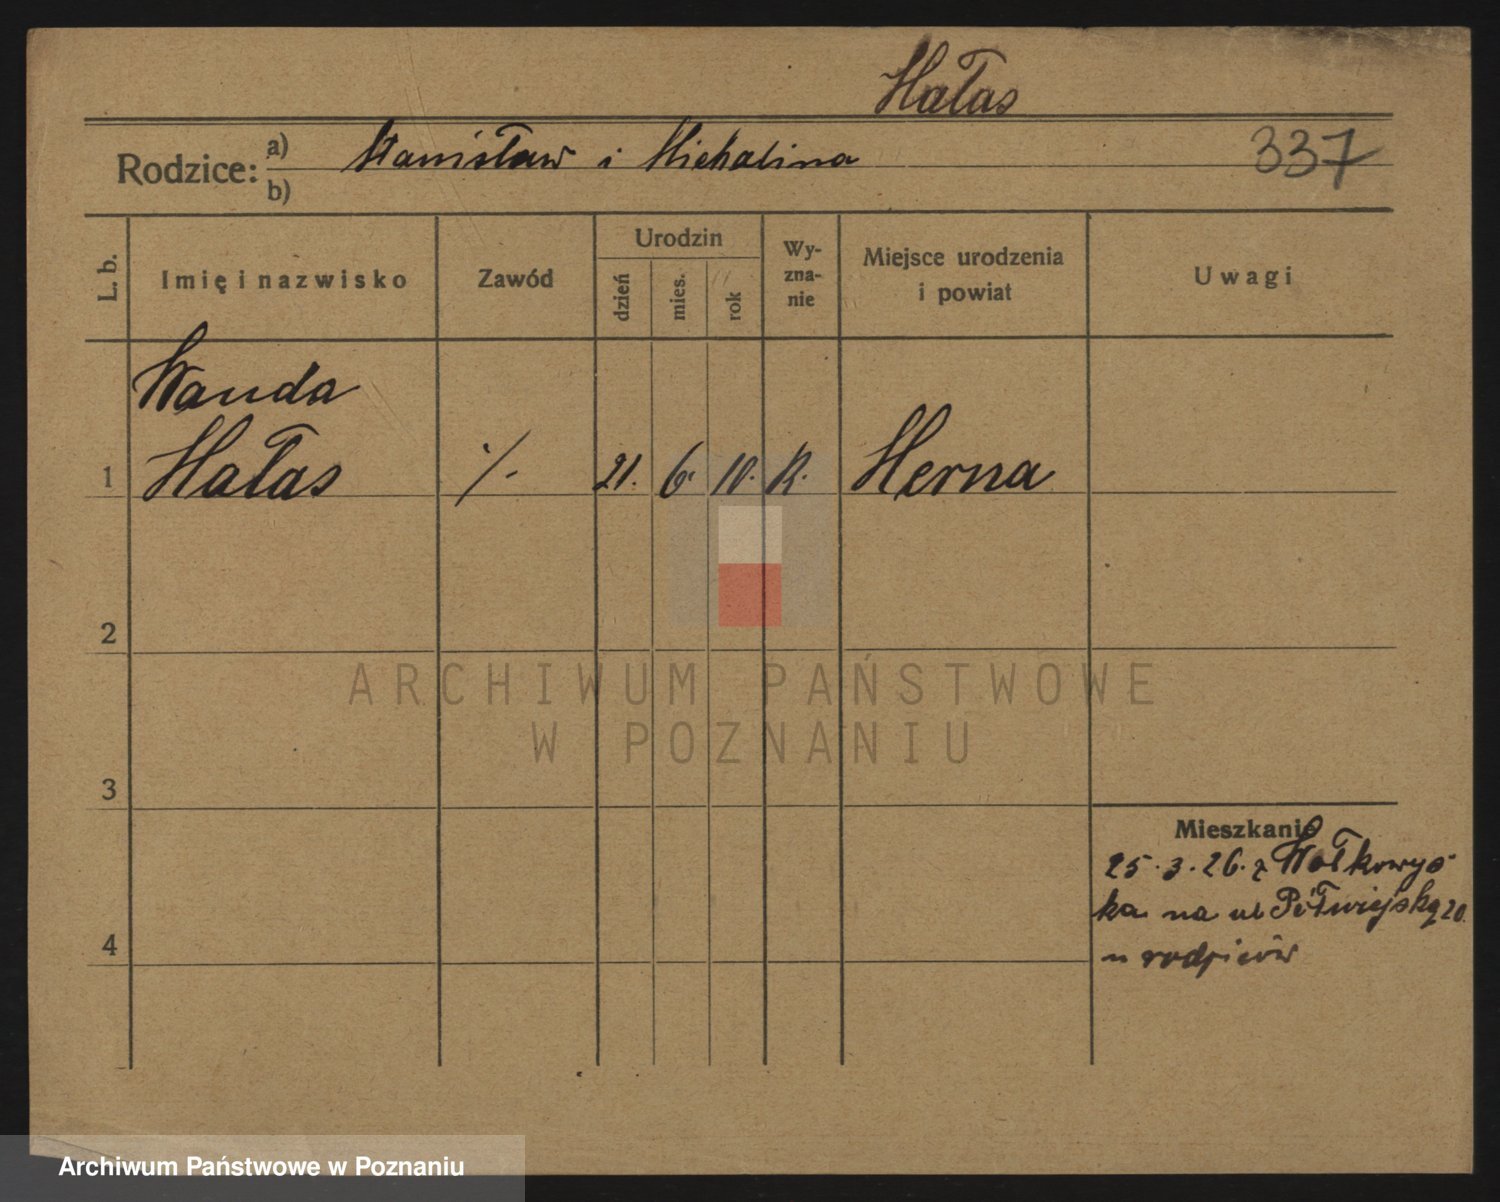 Hałas
Rodzice: a) Stanisław i Michalina
b)
337
L. b.
Imię i nazwisko
Zawód
Urodzin
dzień
mies.
rok
Wy-
zna-
nie
Miejsce urodzenia
i powiat
Uwagi
Wanda
1 Hałas ·/· 21. 6. 10. K. Herna
2
3
4
Mieszkanie
25.3.26. z Wołkowys
ka na ul Półwiejską 20.
u rodziców
ARCHIWUM PAŃSTWOWE
W POZNANIU
Archiwum Państwowe w Poznaniu